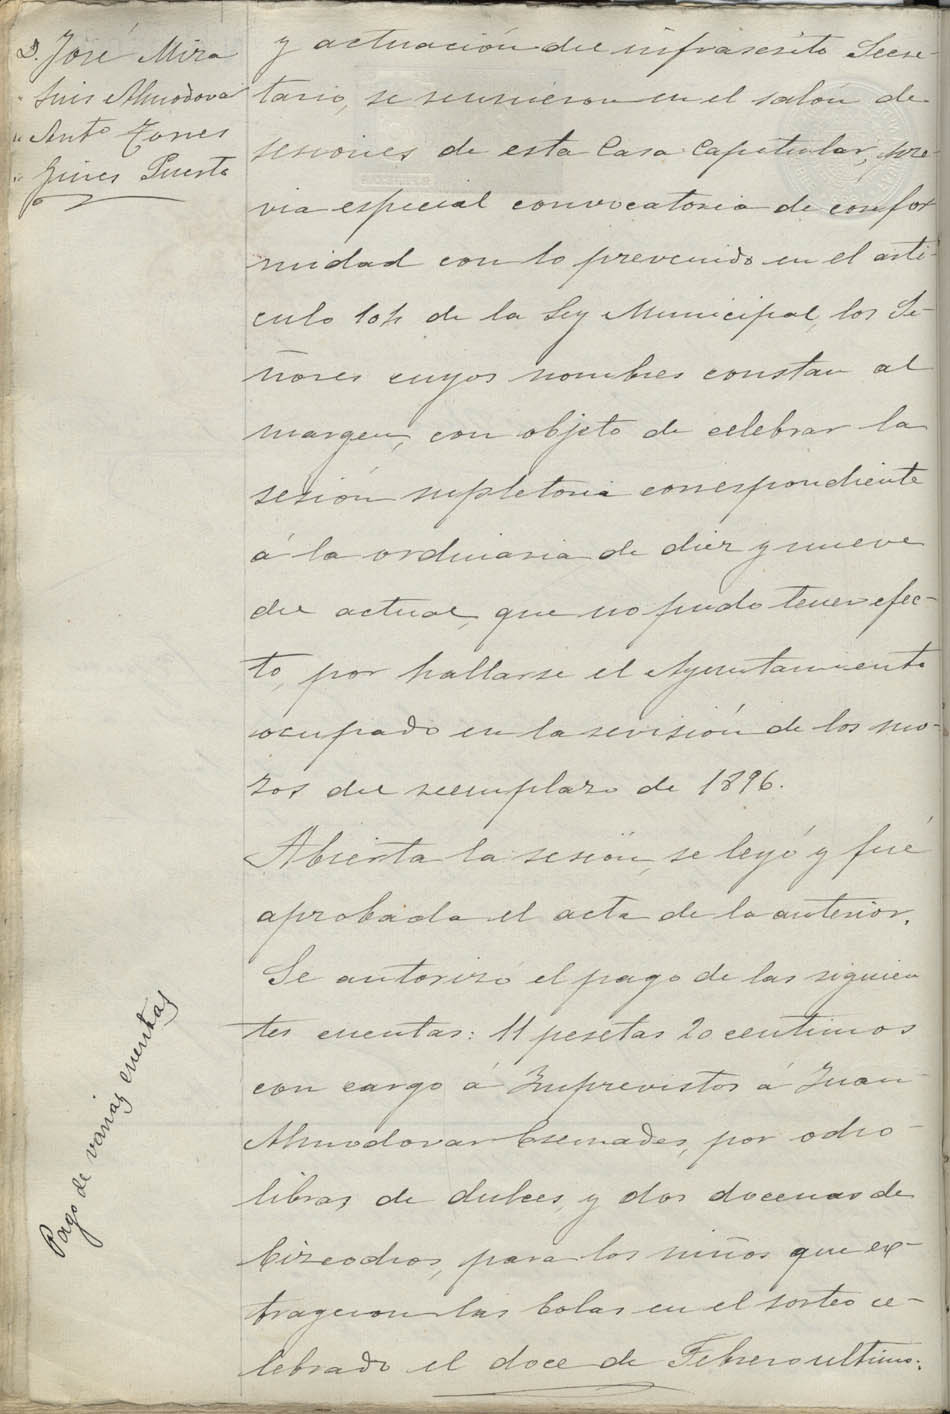 D. José Mira
" Luis Almodovar
" Antº Torres
" Gines Puerto
y actuación del infrascrito Secre-
tario, se reunieron en el salón de
sesiones de esta Casa Capitular, pre-
via especial convocatoria de confor
midad con lo prevenido en el arti-
culo 104 de la Ley Municipal, los Se-
ñores cuyos nombres constan al
margen, con objeto de celebrar la
sesión supletoria correspondiente
á la ordinaria de diez y nueve
del actual, que no pudo tener efec-
to, por hallarse el Ayuntamiento
ocupado en la revisión de los mo-
zos del reemplazo de 1896.
Abierta la sesión, se leyó y fué
aprobada el acta de la anterior.
Pago de varias cuentas
Se autorizó el pago de las siguien
tes cuentas: 11 pesetas 20 centimos
con cargo á Imprevistos á Juan
Almodovar por ocho
libras de dulces, y dos docenas de
bizcochos, para los niños que ex-
trageron las bolas en el sorteo ce-
lebrado el doce de Febrero ultimo.